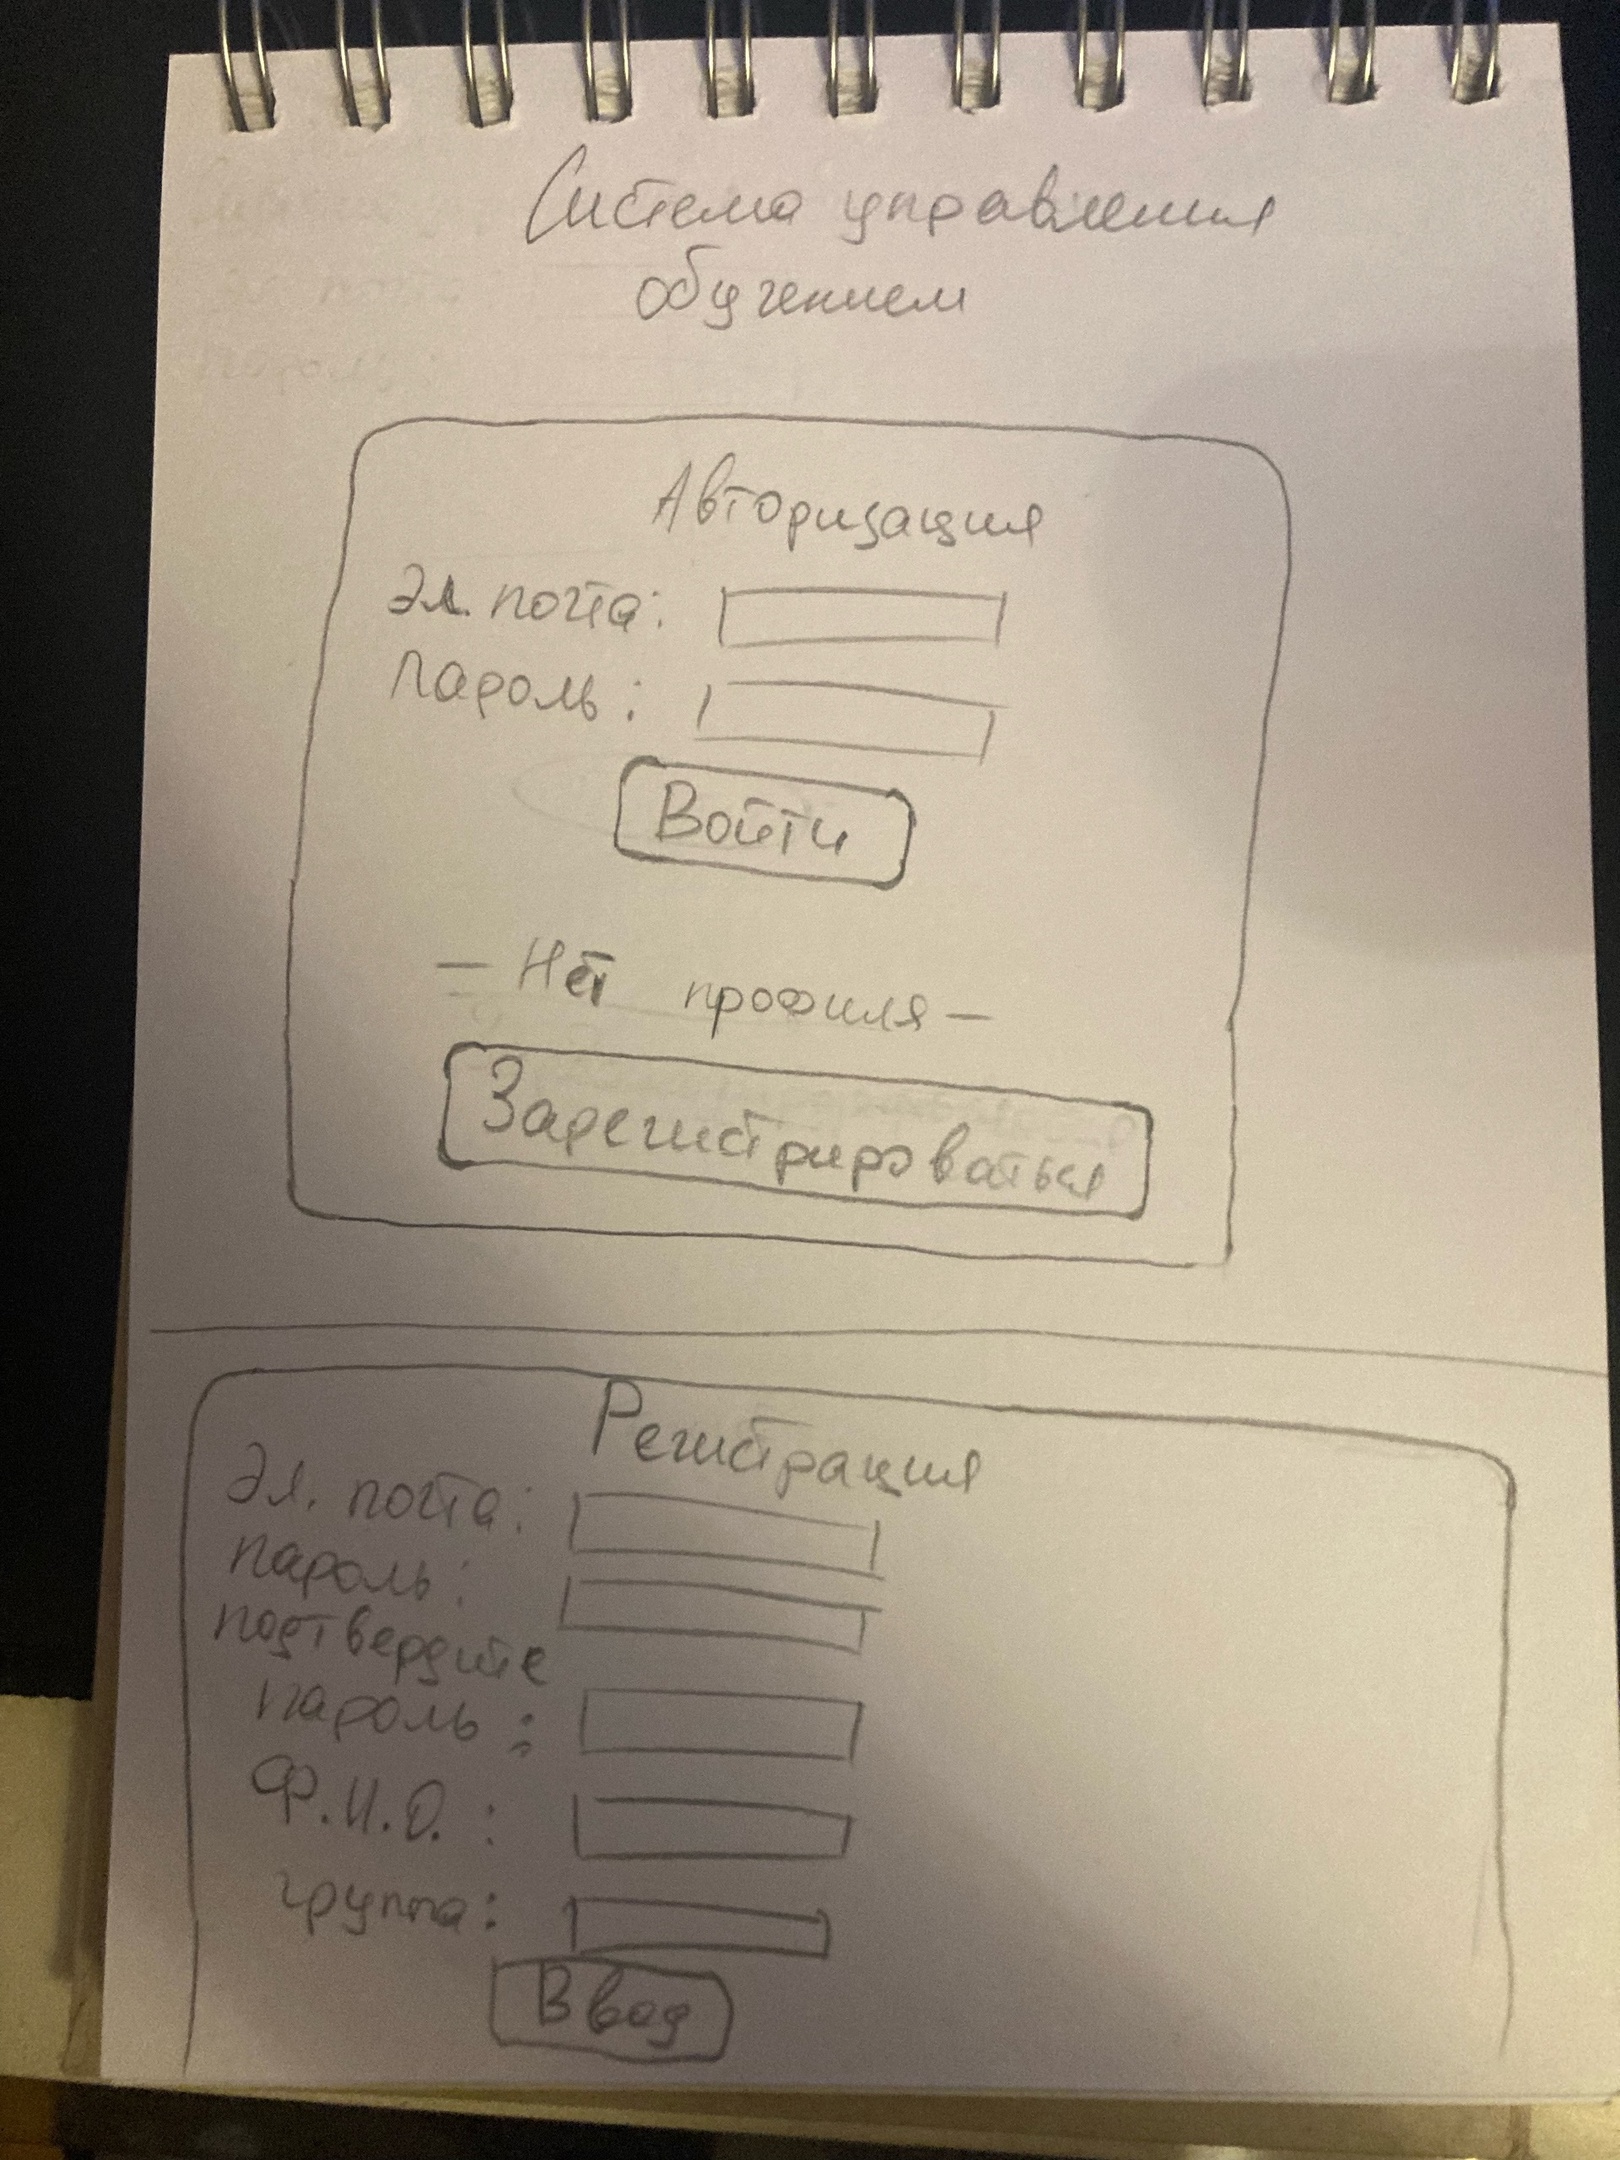 Система управления
обучением
Авторизация
Эл. почта:
Пароль:
Войти
— Нет профиля —
Зарегистрироваться
Регистрация
Эл. почта:
пароль:
подтвердите
пароль:
Ф.И.О.:
группа:
Ввод